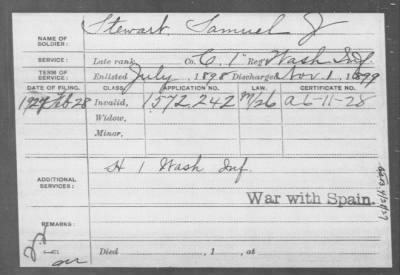 NAME OF SOLDIER: Stewart, Samuel J
SERVICE: Late rank, Co. C, 1" Reg't Wash Inf
TERM OF SERVICE: Enlisted July, 1898 Discharged Nov. 1, 1899
DATE OF FILING. CLASS. APPLICATION NO. LAW. CERTIFICATE NO.
1927 Feb 28 Invalid, 1572,242 a 6-11-28
Widow,
Minor,
ADDITIONAL SERVICES: H 1 Wash Inf.
War with Spain.
REMARKS:
Died, 1, at